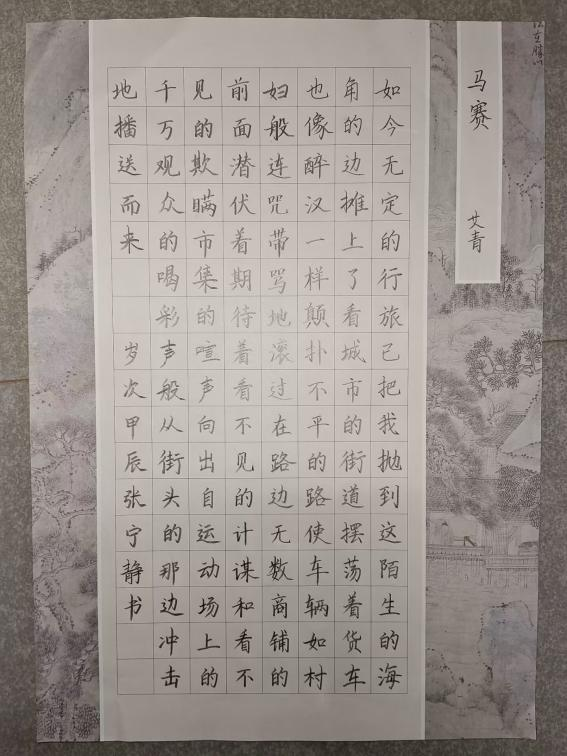 马赛
艾青
如今无定的行旅已把我抛到这陌生的海
角的边摊上了看城市的街道摆荡着货车
也像醉汉一样颠扑不平的路使车辆如村
妇般连咒带骂地滚过在路边无数商铺的
前面潜伏着期待着看不见的计谋和看不
见的欺瞒市集的喧声向出自运动场上的
千万观众的喝彩声般从街头的那边冲击
地播送而来
岁次甲辰张宁静书